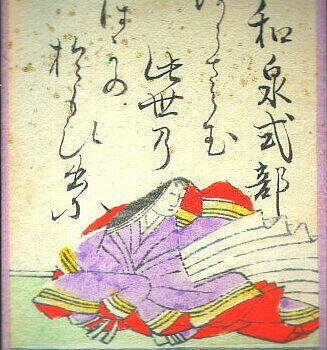 和泉式部
らさらむ
此世乃
ほかの
おもひ出に